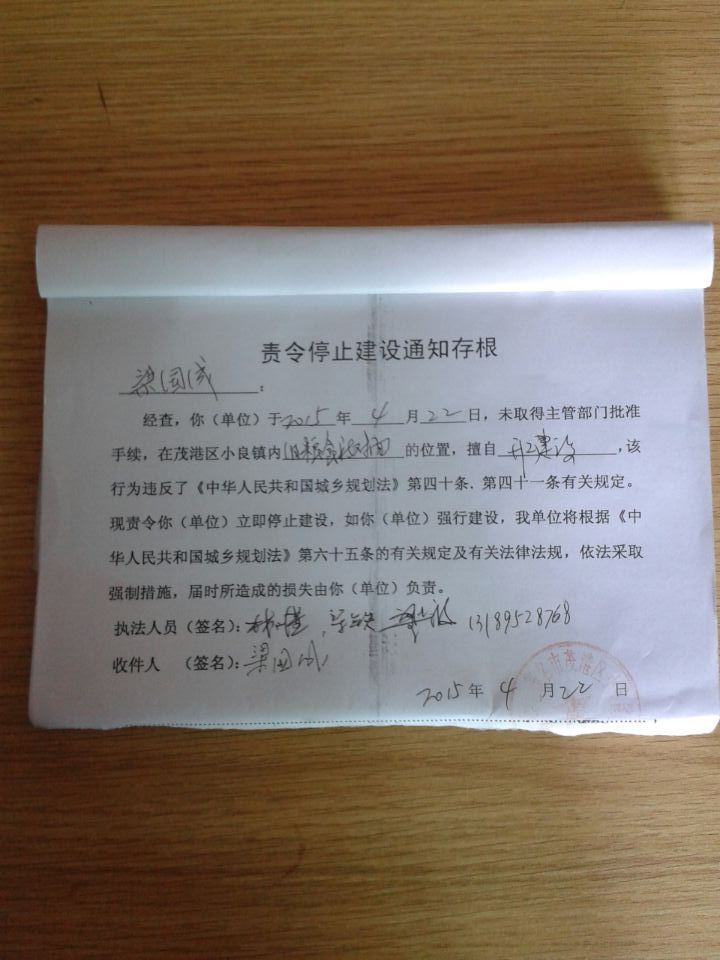 责令停止建设通知存根
梁国成：
经查，你（单位）于2015年4月22日，未取得主管部门批准
手续，在茂港区小良镇内的位置，擅自建设，该
行为违反了《中华人民共和国城乡规划法》第四十条、第四十一条有关规定。
现责令你（单位）立即停止建设，如你（单位）强行建设，我单位将根据《中
华人民共和国城乡规划法》第六十五条的有关规定及有关法律法规，依法采取
强制措施，届时所造成的损失由你（单位）负责。
执法人员（签名）：13189528768
收件人 （签名）：梁国成
2015年4月22日
市茂港区